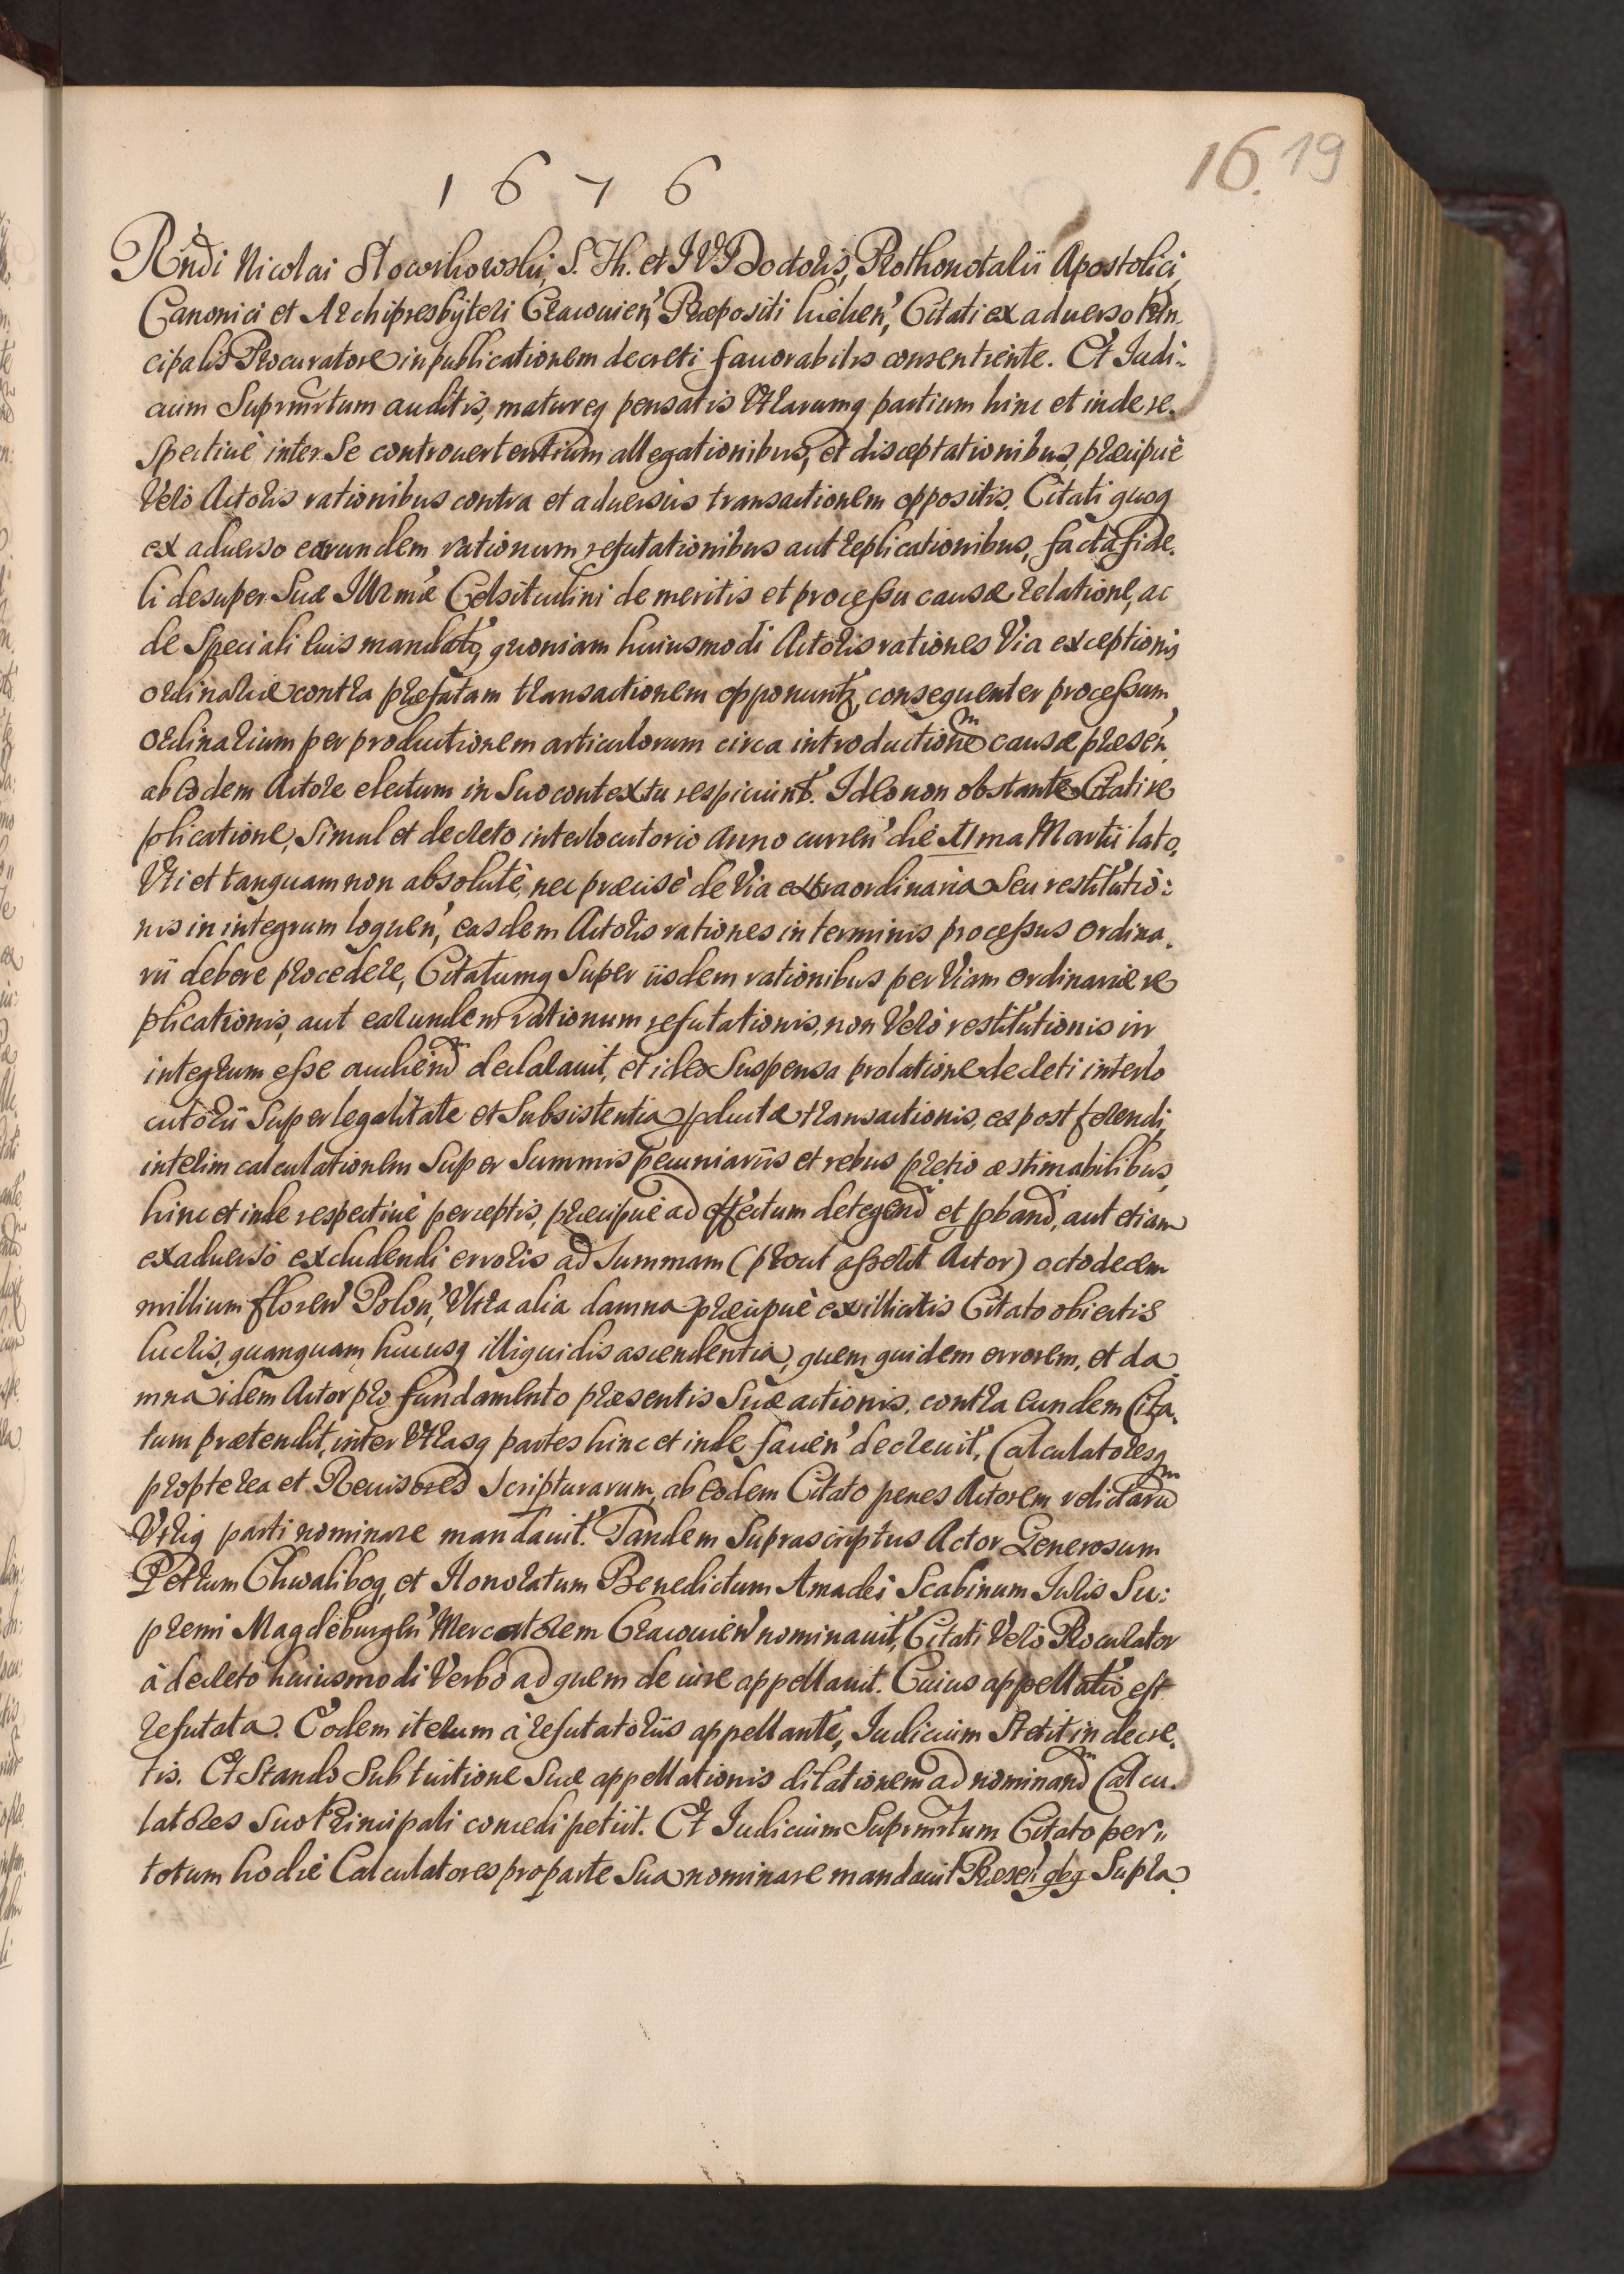 16. 19
1 6 7 6
Rndi Nicolai Slowikowski, S. Th. et I V. Doctoris, Prothonotarii Apostolici,
Canonici et Archipresbyteri Cracouien, Præpositi Kielcen, Citati ex aduerso Prin
cipalis Procuratore in publicationem decreti fauorabilis consentiente. Et Iudi:
cium Suprmtum auditis, matureq pensatis Vtrarumq partium hinc et inde re.
spectiuè inter Se controuertentium allegationibus, et disceptationibus, præcipuè
Verò Actoris rationibus contra et aduersùs transactionem oppositis. Citati quoq
ex aduerso earundem rationum refutationibus aut replicationibus, facta fide.
li desuper Suæ Illrmæ Celsitudini de meritis et processu causæ relatione, ac
de Speciali eius mandato, quoniam huiusmodi Actoris rationes Via exceptionis
ordinariæ contra præfatam transactionem opponuntr, consequenter processum
ordinarium per productionem articulorum circa introductionem causæ præsen,
ab eodem Actore electum in Suo contextu respiciunt. Ideo non obstante Citati re
plicatione, Simul et decreto interlocutorio Anno curren' die XIma Martii lato,
Vti et tanquam non absolutè, nec præcisè de Via extraordinaria Seu restitutio:
nis in integrum loquen', easdem Actoris rationes in terminis processus ordina.
rii debere procedere, Citatumq Super iisdem rationibus per Viam ordinariæ re
plicationis, aut earundem rationum refutationis, non Verò restitutionis in
integrum esse audiend declarauit, et ideo Suspensa prolatione decreti interlo
cutorii Super legalitate et Subsistentia pductæ transactionis, ex post ferendi,
interim calculationem Super Summis pecuniariis et rebus pretio æstimabilibus,
hinc et inde respectiuè perceptis, præcipuè ad effectum detegend et pband, aut etiam
ex aduerso excludendi erroris ad Summam (prout asserit Actor) octodecem
millium floren' Polon', Vltra alia damna præcipuè ex illicitis Citato obiectis
lucris, quanquam hucusq illiquidis ascendentia, quem quidem errorem, et da
mna idem Actor pro fundamento præsentis Suæ actionis, contra eundem Cita.
tum prætendit, inter Vtrasq partes hinc et inde facien' decreuit, Calculatoresq
propterea et Reuisores Scripturarum, ab eodem Citato penes Actorem relictarum
Vtriq parti nominare mandauit. Tandem Suprascriptus Actor Generosum
Petrum Chwalibog, et Honoratum Benedictum Amadei Scabinum Iuris Su:
premi Magdeburgen' Mercatorem Cracouien' nominauit, Citati Verò Procurator
à decreto huiusmodi Verbo ad quem de iure appellauit. Cuius appellatio est
refutata. Eodem iterum à refutatoriis appellante, Iudicium Stetit in decre.
tis. Et Stando Sub tuitione Suæ appellationis dilationem ad nominand Calcu.
latores Suo Principali concedi petiit. Et Iudicium Suprmtum Citato per„
totum hodiè Calculatores pro parte Sua nominare mandauit Præsen' qbq Supra